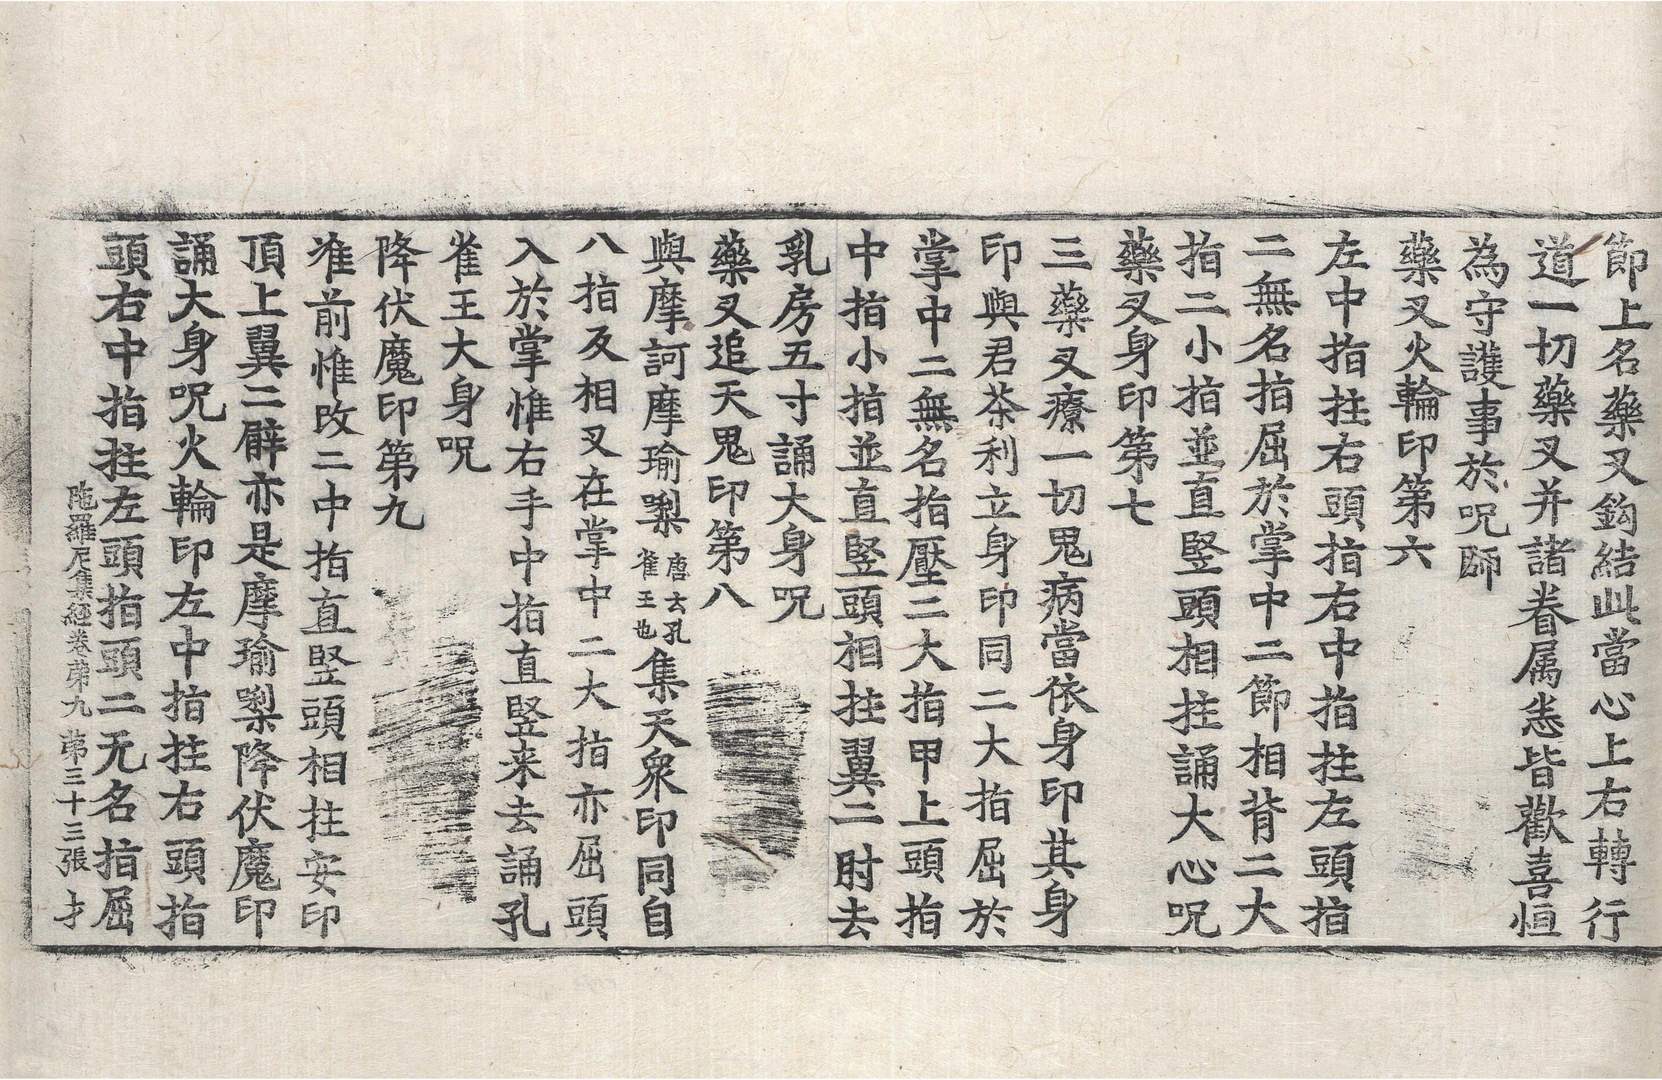 節上名藥叉鈎結此當心上右轉行
道一切藥叉并諸眷属恙皆歡喜恒
為守護事於呪師
藥叉火輪印第六
左中指拄右頭指右中指拄左頭指
二無名指屈於掌中二節相背二大
指二小指並直竪頭相拄誦大心呪
藥叉身印第七
三藥叉療一切鬼病當依身印其身
印與君茶利立身印同二大指屈於
掌中二無名指壓二大指甲上頭指
中指小指並直竪頭相拄翼二肘去
乳房五寸誦大身呪
藥叉追天鬼印第八
與摩訶摩瑜梨唐云孔雀王也集天衆印同自
八指反相叉在掌中二大指亦屈頭
入於掌惟右手中指直竪来去誦孔
雀王大身呪
降伏魔印第九
准前惟改二中指直竪頭相拄安印
頂上翼二臂亦是摩瑜梨降伏魔印
誦大身呪火輪印左中指拄右頭指
頭右中指拄左頭指頭二无名指屈
陁羅尼集經卷第九 第三十三張 才